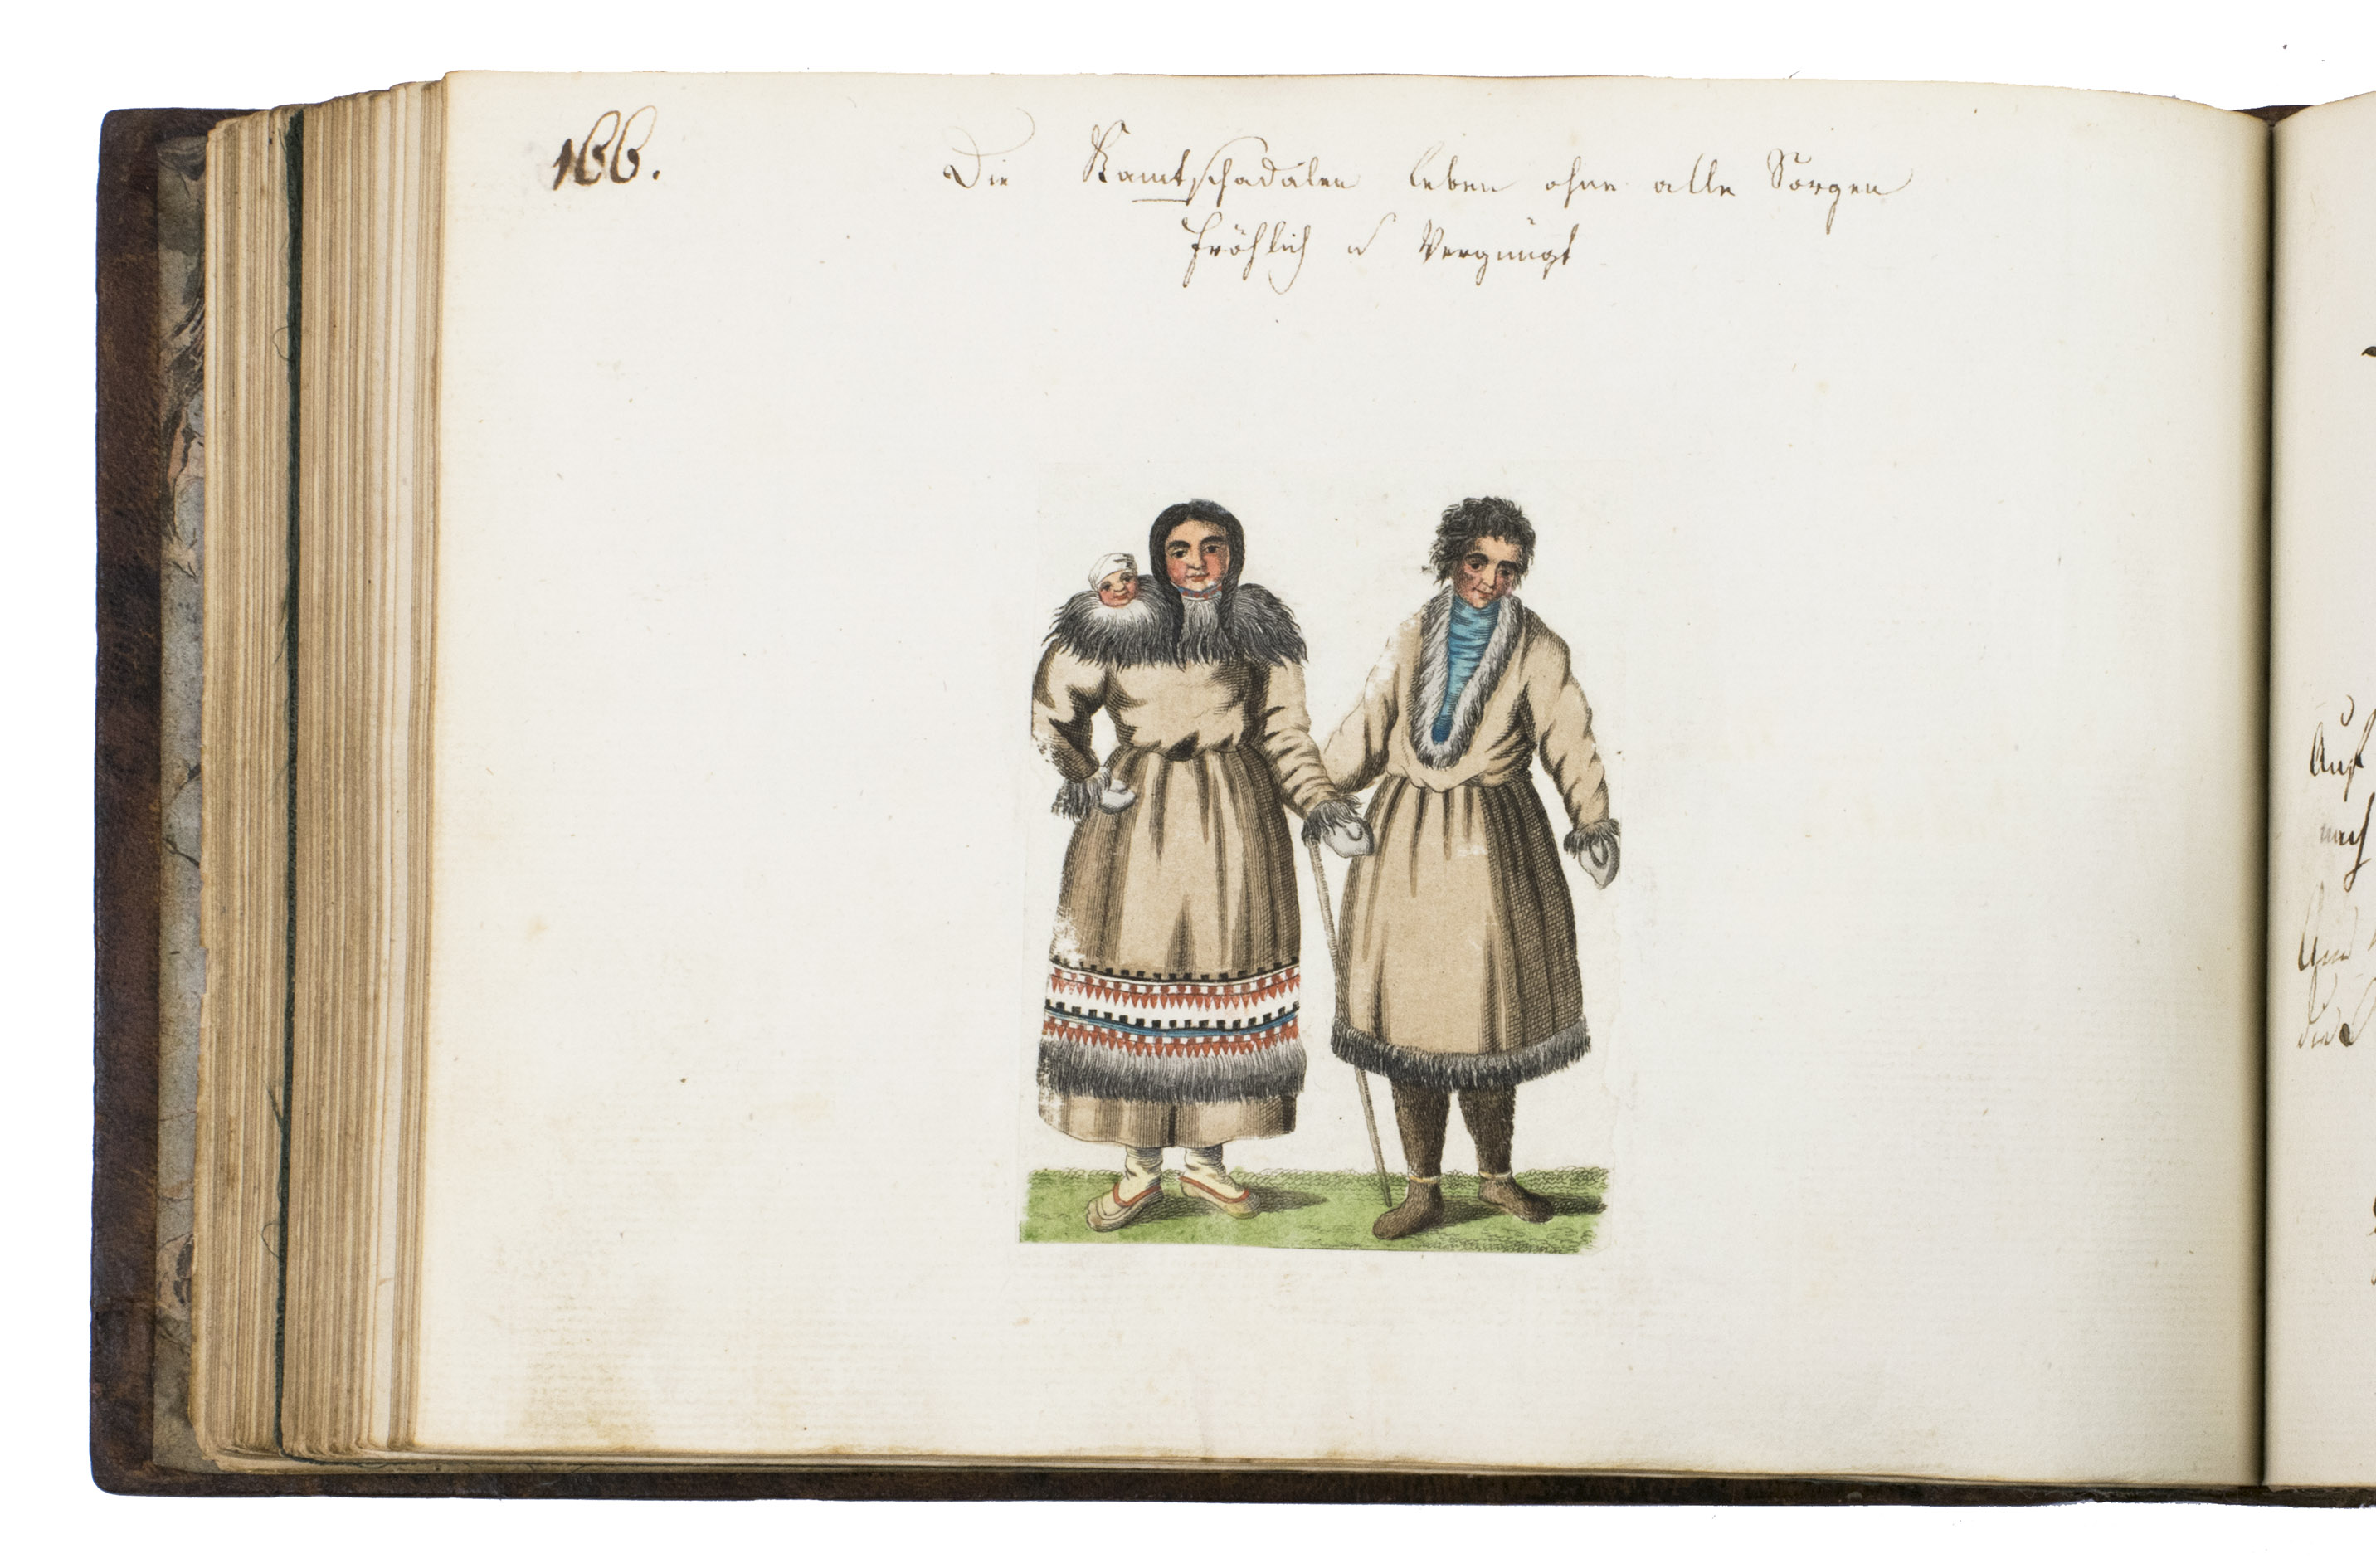 166.
Die Kamtschadalen leben ohne alle Sorgen
fröhlich u Vergnügt
Auf
nach
Und
die